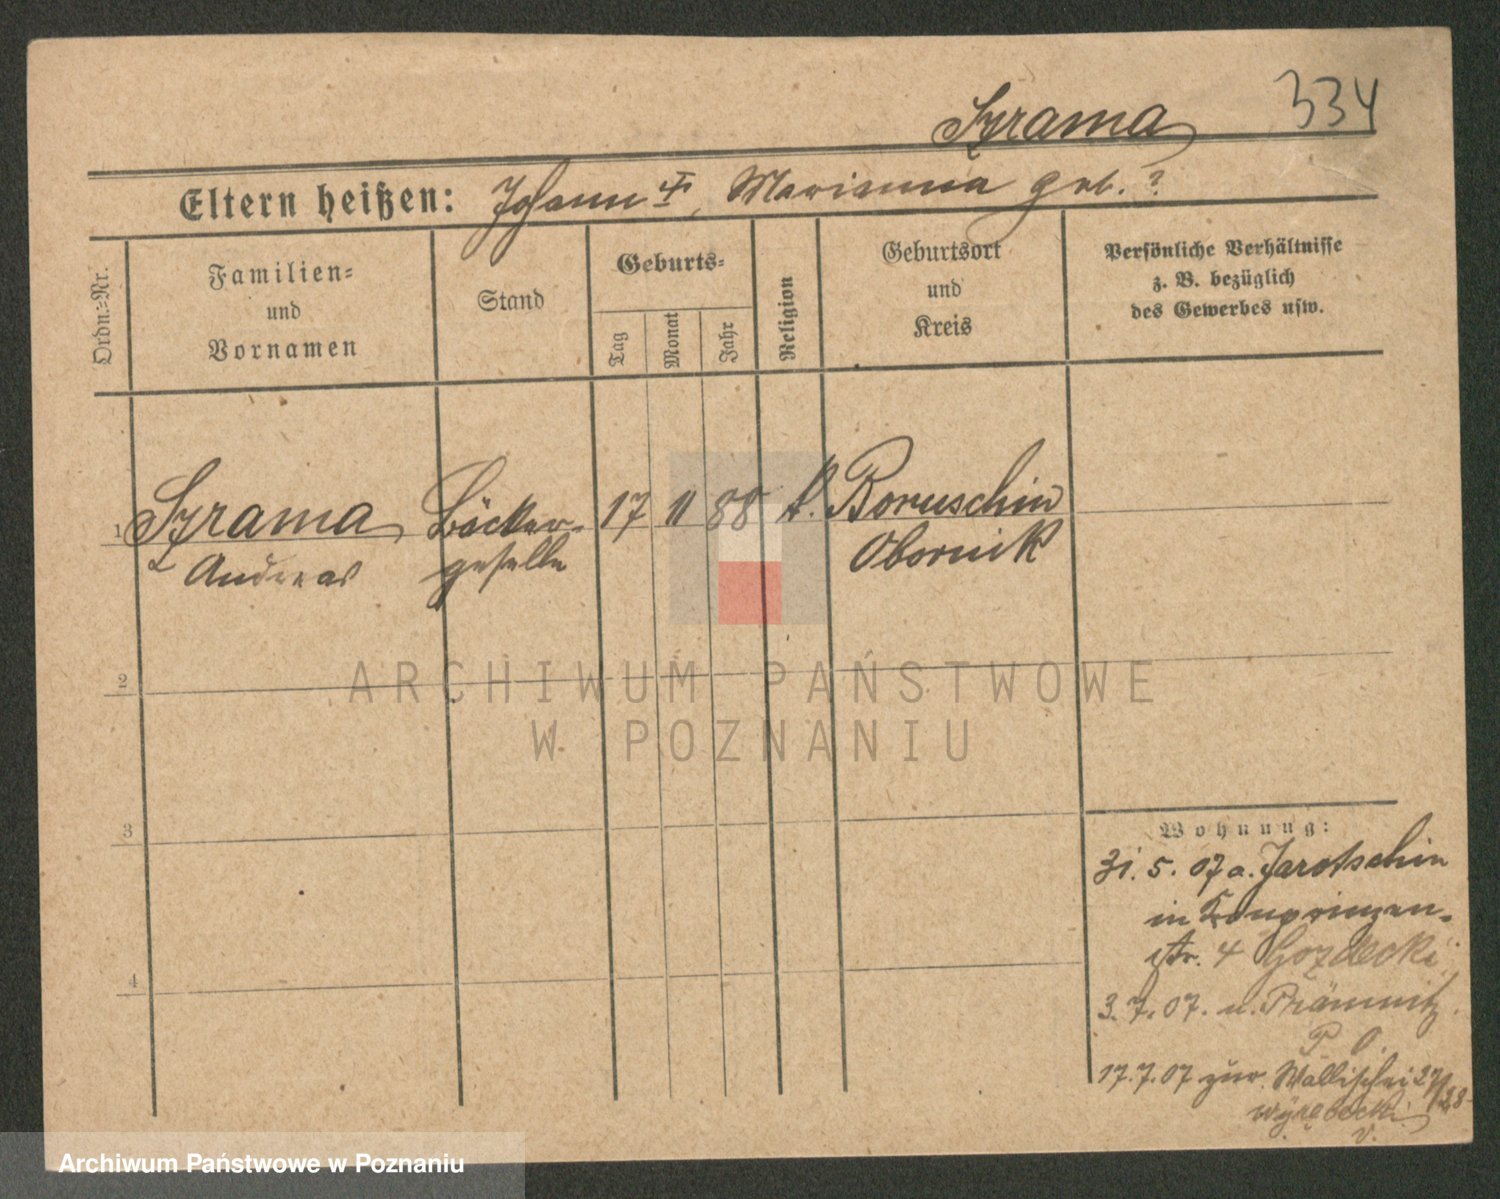 Szrama
334
Eltern heißen: Johann ✝, Marianna geb. ?
Ordn.=Nr.
Familien=
und
Vornamen
Stand
Geburts=
Tag
Monat
Jahr
Religion
Geburtsort
und
Kreis
Persönliche Verhältnisse
z. B. bezüglich
des Gewerbes usw.
1 Szrama Bäcker= 17 11 88 k. Boruschin
Andreas geselle Obornik
2
3
4
Wohnung:
31. 5. 07 a. Jarotschin
in Kronprinzen-
str. 4 Gozdecki
3. 7. 07. n.
P. O.
17. 7. 07 zur. Wallischei 27/28
v.
ARCHIWUM PAŃSTWOWE
W POZNANIU
Archiwum Państwowe w Poznaniu